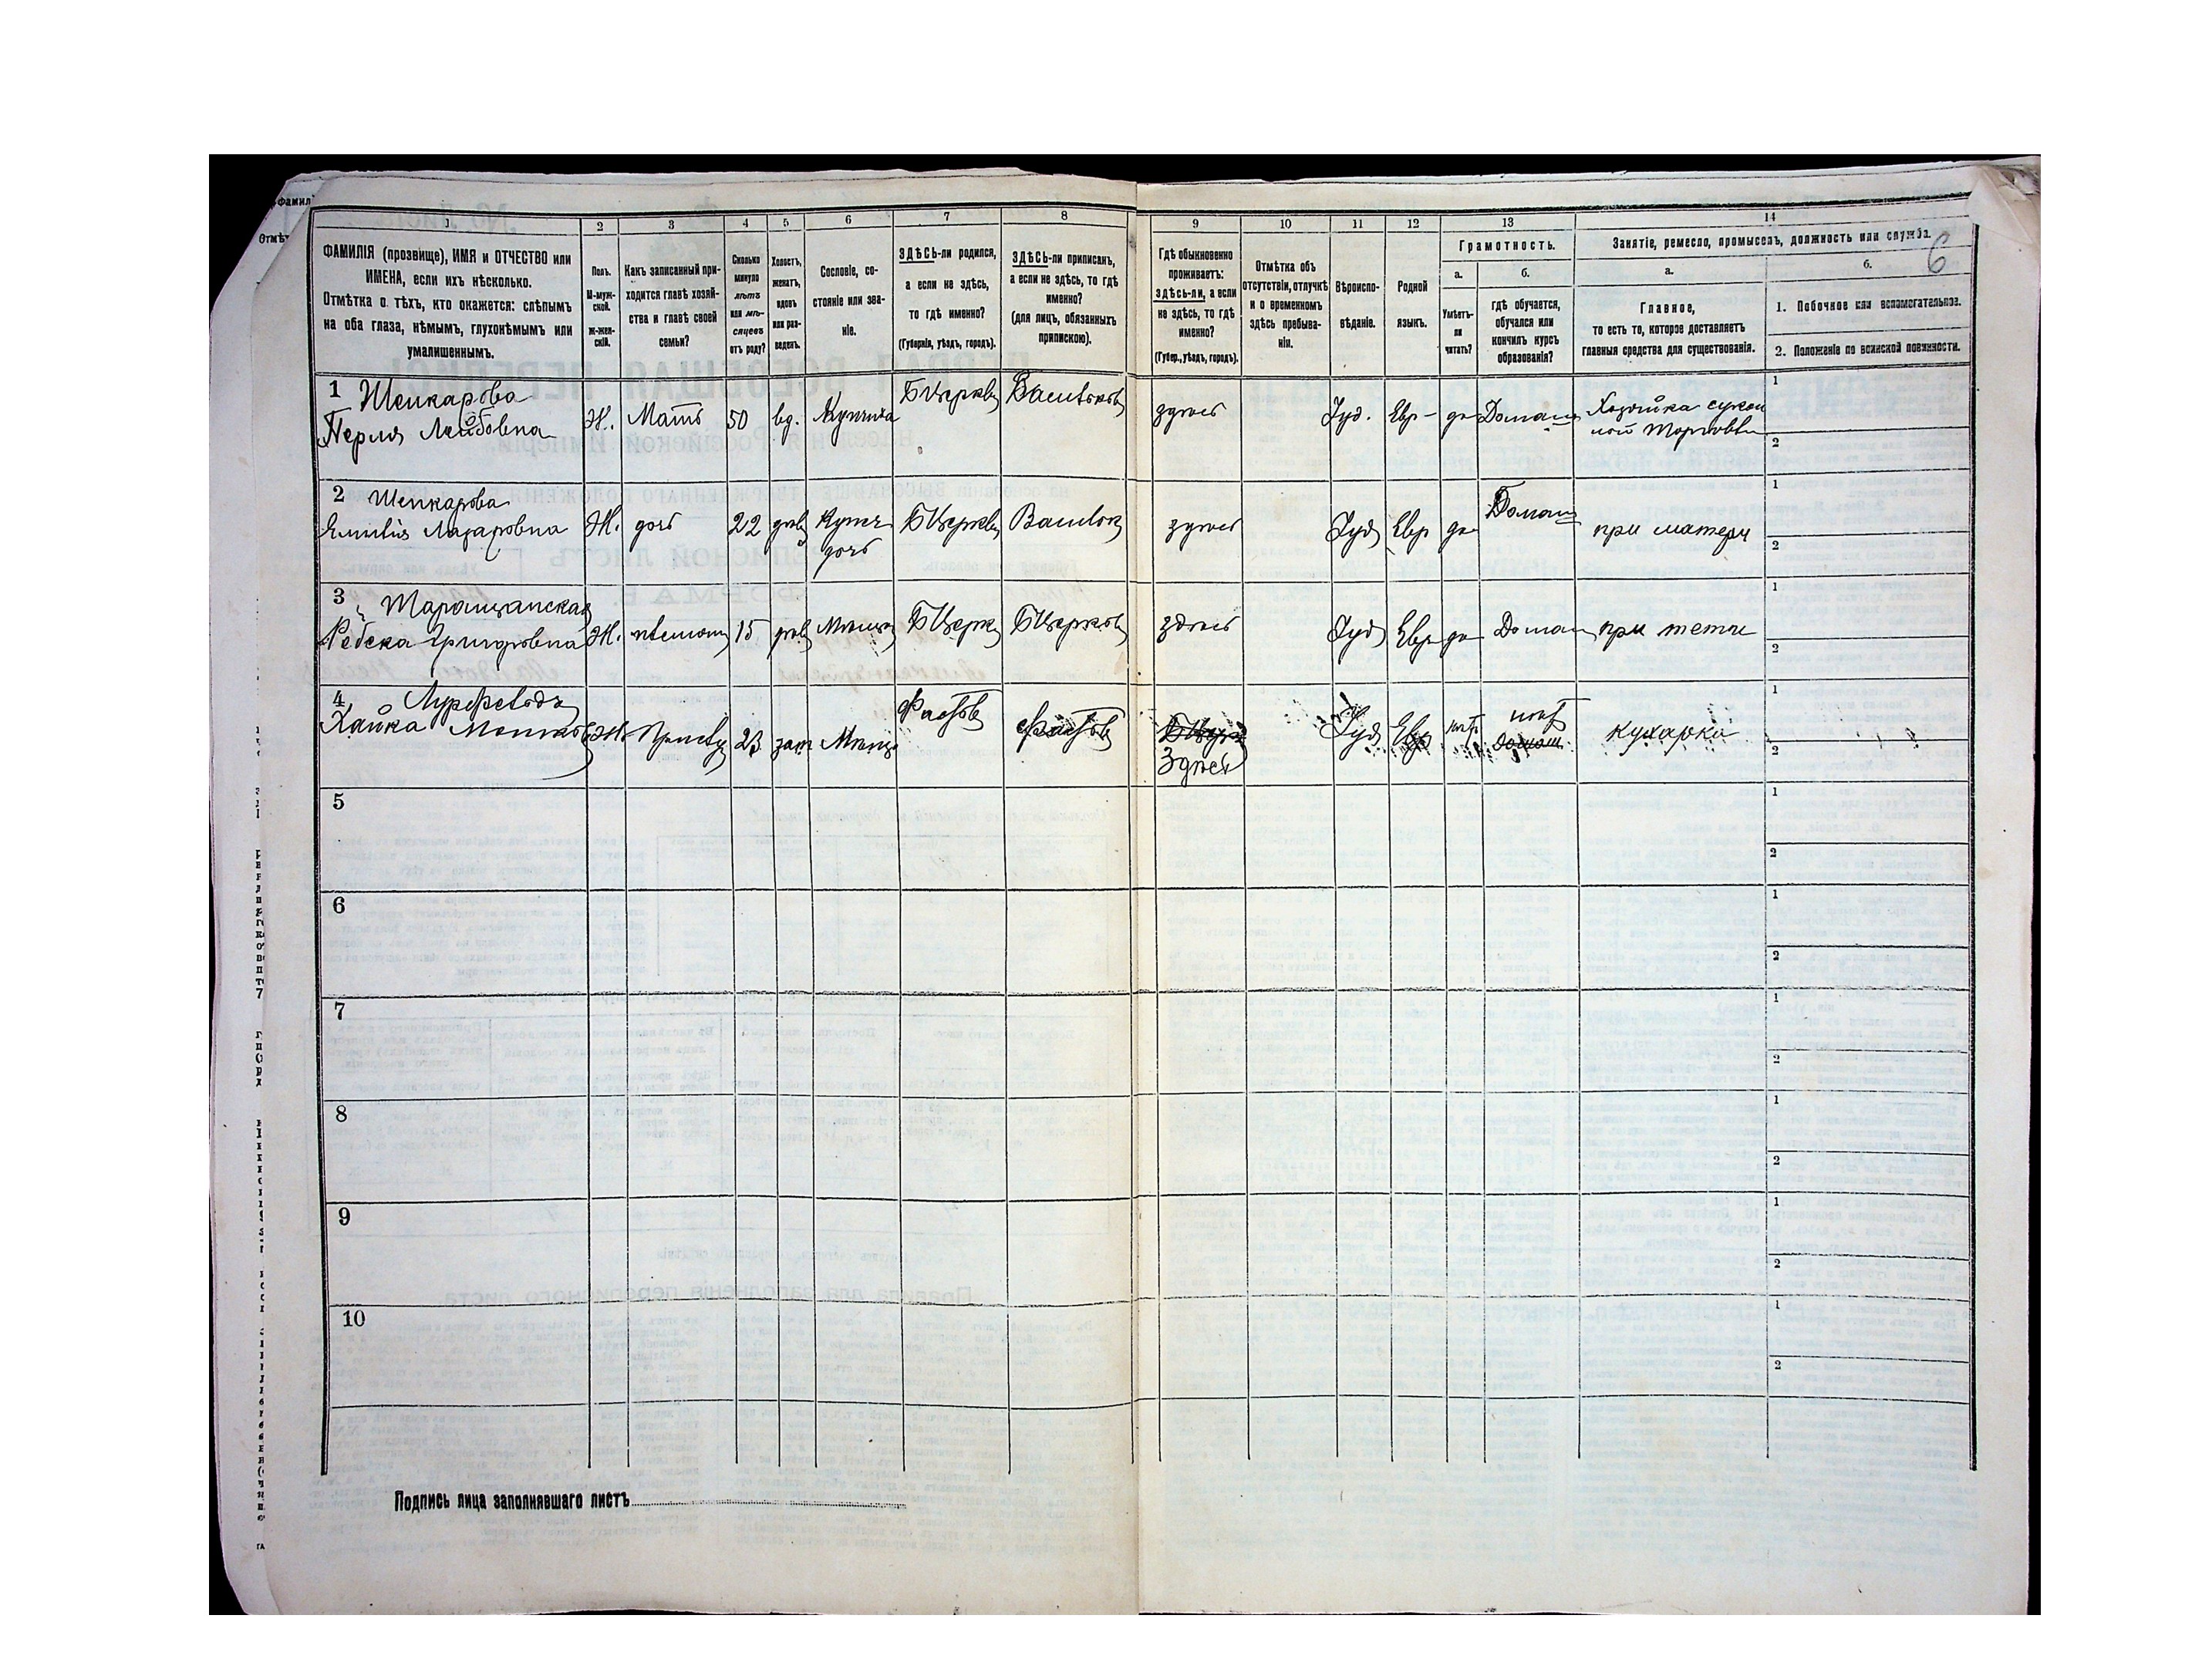 1
2
3
4
5
6
7
8
9
10
11
12
13
14
6
ФАМИЛІЯ (прозвище), ИМЯ и ОТЧЕСТВО или
ИМЕНА, если ихъ нѣсколько.
Отмѣтка о тѣхъ, кто окажется: слѣпымъ
на оба глаза, нѣмымъ, глухонѣмымъ или
умалишеннымъ.
Полъ.
М-муж-
ской.
ж-жен-
скій.
Какъ записанный при-
ходится главѣ хозяй-
ства и главѣ своей
семьи?
Сколько
минуло
лѣтъ
или мѣ-
сяцевъ
отъ роду?
Холостъ,
женатъ,
вдовъ
или раз-
веденъ.
Сословіе, со-
стояніе или зва-
ніе.
ЗДѢСЬ-ли родился,
а если не здѣсь,
то гдѣ именно?
(Губернія, уѣздъ, городъ).
ЗДѢСЬ-ли приписанъ,
а если не здѣсь, то гдѣ
именно?
(для лицъ, обязанныхъ
припискою).
Гдѣ обыкновенно
проживаетъ:
здѣсь-ли, а если
не здѣсь, то гдѣ
именно?
(Губер., уѣздъ, городъ).
Отмѣтка объ
отсутствіи, отлучкѣ
и о временномъ
здѣсь пребыва-
ніи.
Вѣроиспо-
вѣданіе.
Родной
языкъ.
Грамотность.
а.
Умѣетъ-
ли
читать?
б.
гдѣ обучается,
обучался или
кончилъ курсъ
образованія?
Занятіе, ремесло, промыселъ, должность или служба.
а.
Главное,
то есть то, которое доставляетъ
главныя средства для существованія.
б.
1. Побочное или вспомогательное.
2. Положеніе по воинской повинности.
1 Шенкарова
Перля Лейбовна
Ж.
Мать
50
вд.
Купчиха
БЦерквь
Васильковъ
здѣсь
Іуд.
Евр-
да
Домаш
Хозяйка сукон
ной торговли
1
2
2 Шенкарова
Эмилія Лазаровна
Ж.
дочь
22
дѣв
Купеч
дочь
БЦерквь
Васильк
здѣсь
Іуд
Евр
да
Домаш
при матери
1
2
3 Таращанская
Ребека Григоровна
Ж.
племян
15
дѣв
Мѣщан
БЦерк
БЦерков
здѣсь
Іуд
Евр
да
Домаш
при теткѣ
1
2
4
Хайка
Ж
Прислу
23
зам
Мѣщ
Фастов
Фастов
Здѣсь
Іуд
Евр
нѣт
нѣт
Домаш
кухарка
1
2
5
1
2
6
1
2
7
1
2
8
1
2
9
1
2
10
1
2
Подпись лица заполнявшаго листъ